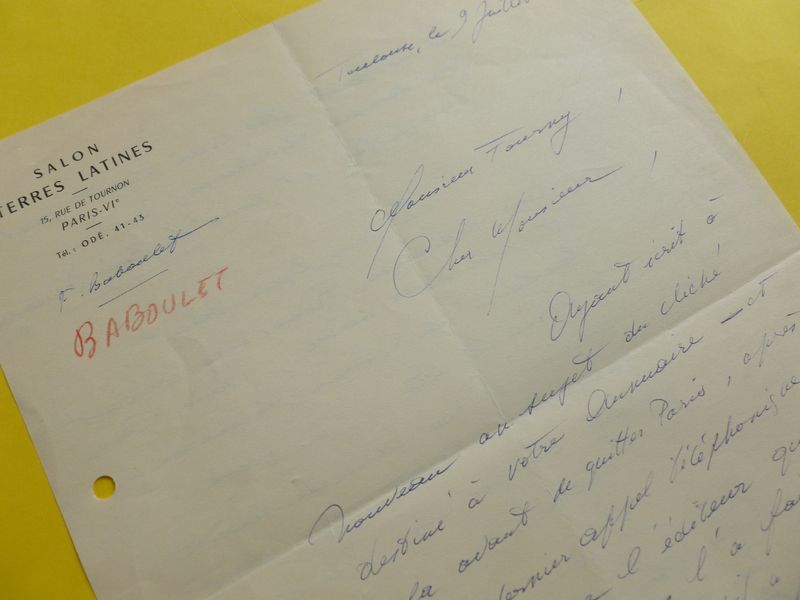 SALON
TERRES LATINES
15, RUE DE TOURNON
PARIS-VIe
Tél.: ODÉ. 41-43
F. Baboulet
BABOULET
Toulouse, le 9 Juillet
Monsieur Tourny,
Cher Monsieur,
Ayant écrit à
nouveau au sujet du cliché
destiné à votre Annuaire - et
avant de quitter Paris, après
dernier appel téléphonique
l'éditeur qu
l'a fa